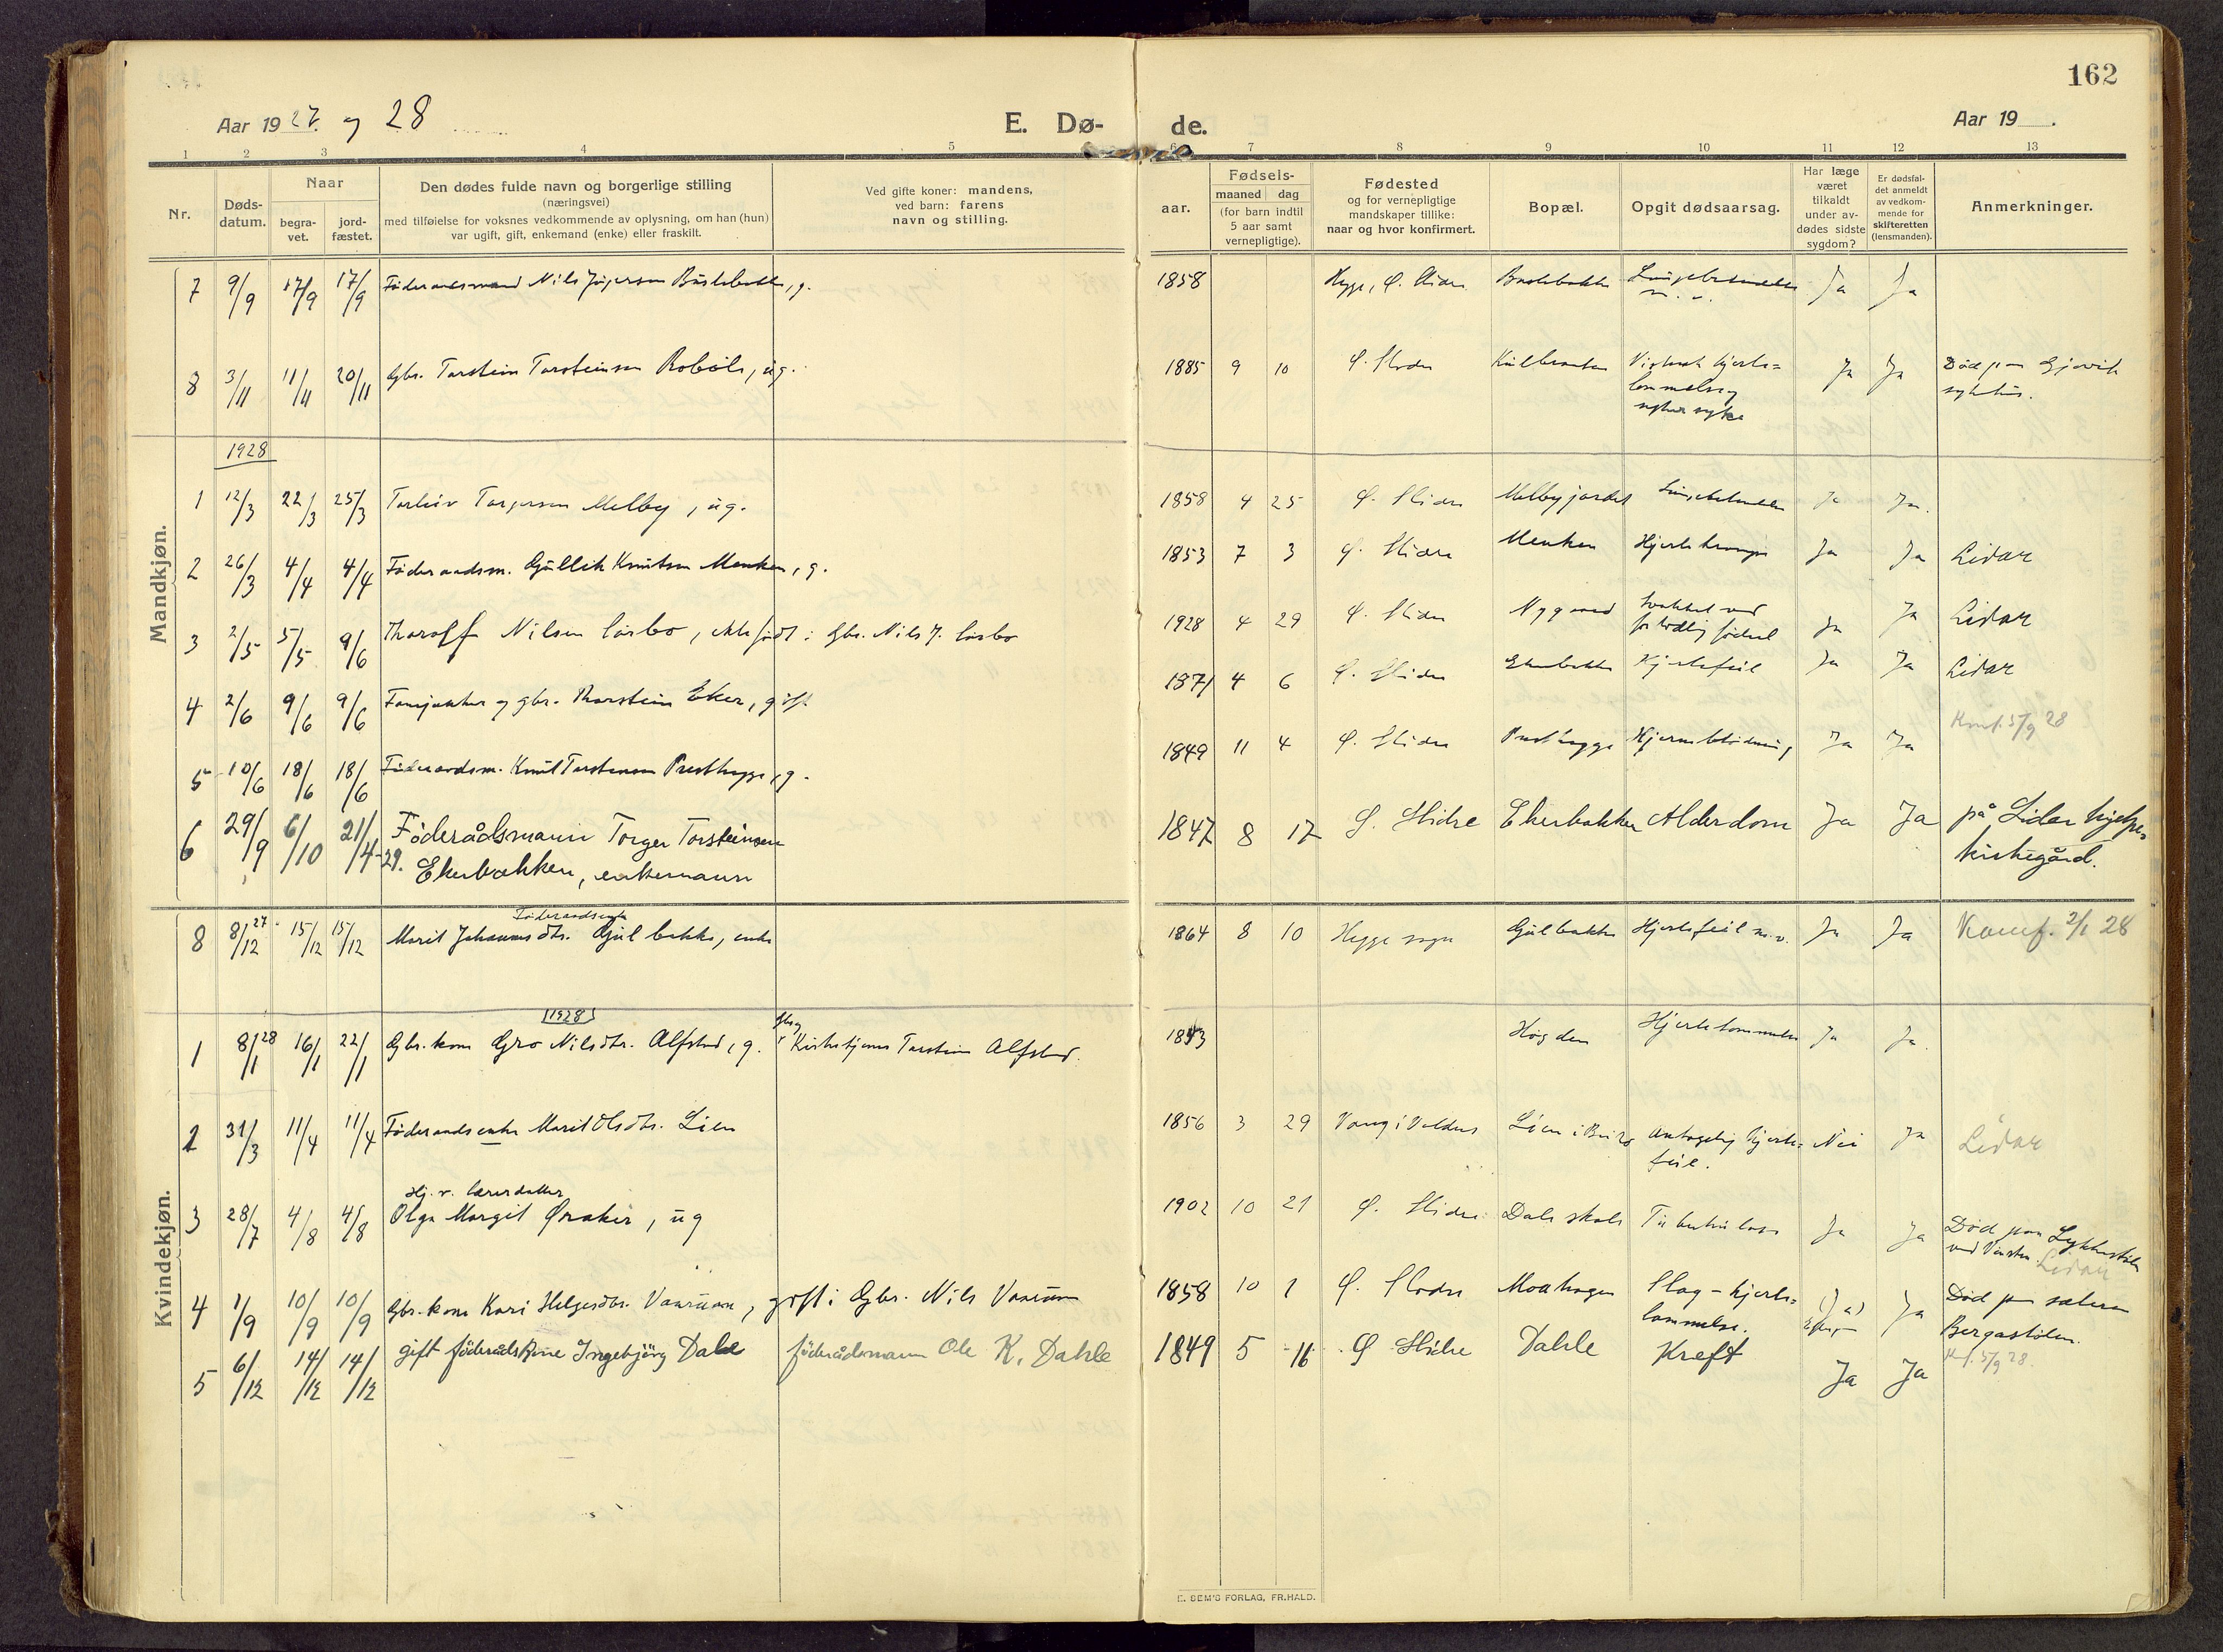 162
Aar 1927. og 28
E. Dø-
de.
Aar 19 .
1 2 3 4 5 6 7 8 9 10 11 12 13
Nr.
Døds-
datum.
Naar
begra-
vet.
jord-
fæstet.
Den dødes fulde navn og borgerlige stilling
(næringsvei)
med tilføielse for voksnes vedkommende av oplysning, om han (hun)
var ugift, gift, enkemand (enke) eller fraskilt.
Ved gifte koner: mandens,
ved barn: farens
navn og stilling.
aar.
Fødsels-
maaned dag
(for barn indtil
5 aar samt
vernepligtige).
Fødested
og for vernepligtige
mandskaper tillike:
naar og hvor konfirmert.
Bopæl.
Opgit dødsaarsag.
Har læge
været
tilkaldt
under av-
dødes sidste
sygdom?
Er dødsfal-
det anmeldt
av vedkom-
mende for
skifteretten
(lensmanden).
Anmerkninger.
Mandkjøn.
7 9/9 17/9 17/9 Föderaadsmand Nils, g. 1858 Hegge, Ø. Slidre Ja Ja
8 3/11 11/11 20/11 Gbr. Torstein Torsteinsen Robøle, ug. 1885 9 10 Ø. Slidre hjerte=
lammelse
Ja Ja Död paa Gjøvik
sykehus.
1928
1 12/3 22/3 25/3 Torleiv Torgersen Melby, ug. 1858 4 25 Ø. Slidre Melbyjordet Ja Ja.
2 26/3 4/4 4/4 Föderaadsm. Gullik Knutsen Menken, g. 1853 7 3 Ø. Slidre Menken Hjertekrampe Ja Ja Lidar
3 2/5 5/5 9/6 Tharalf Nilsen, ekte født: Gbr. Nils J. 1928 4 29 Ø. Slidre Nygaard Svakhet ved
for tidlig födsel Ja Ja Lidar
4 2/6 9/6 9/6 og gbr. Thorstein Eker, gift 1871 4 6 Ø. Slidre Ekerbakke Hjertefeil Ja Ja Lidar
5 10/6 18/6 18/6 Föderaadsm. Knut Torstensen Presthegge, g. 1849 11 4 Ø. Slidre Presthegge Hjerneblödning Ja Ja Kmf. 5/9 28
6 29/9 6/10 21/4-29. Föderådsmann Torger Torsteinsen
Ekerbakken, enkemann 1847 8 17 Ø. Slidre Ekerbakken Alderdom Ja Ja på Lidar hjelpe=
kirkegård.
Kvindekjøn.
8 8/12 27 15/12 15/12 Föderaadsenke
Marit Johannesdtr. Gulbakke, enke 1864 8 10 Hegge sogn Gulbakke Hjertefeil m.v. Ja Ja Kmf. 2/1 28
1928
1 8/1 28 16/1 22/1 Gbr. kone Gro Nilsdtr. Alfstad, g. Gbr og
Kirketjener Torstein Alfstad. 1843 Høgden Hjertelammelse Ja Ja
2 31/3 11/4 11/4 Föderaadsenke Marit Olsdtr. Lien 1856 3 29 Vang i Valdres Lien i Antagelig hjerte=
feil. Nei Ja Lidar
3 28/7 4/8 4/8 Hj. v. lærerdatter
Olga Margit Øraker, ug 1902 10 21 Ø. Slidre Dale skole Tuberkulose Ja Ja Död paa
Lidar
4 1/9 10/9 10/9 Gbr. kone Kari Helgesdtr. Vaarum, gift: Gbr. Nils Vaarum 1858 10 1 Ø. Slidre Moahagen Slag - hjerte=
lammelse. (Ja) Ja Död paa sæteren
Bergastölen.
Kmf. 5/9 28.
5 6/12 14/12 14/12 gift föderådskone Ingebjörg Dale föderådsmann Ole K. Dahle 1849 5 16 Ø Slidre Dahle Kreft Ja Ja
E. SEM'S FORLAG, FR.HALD.